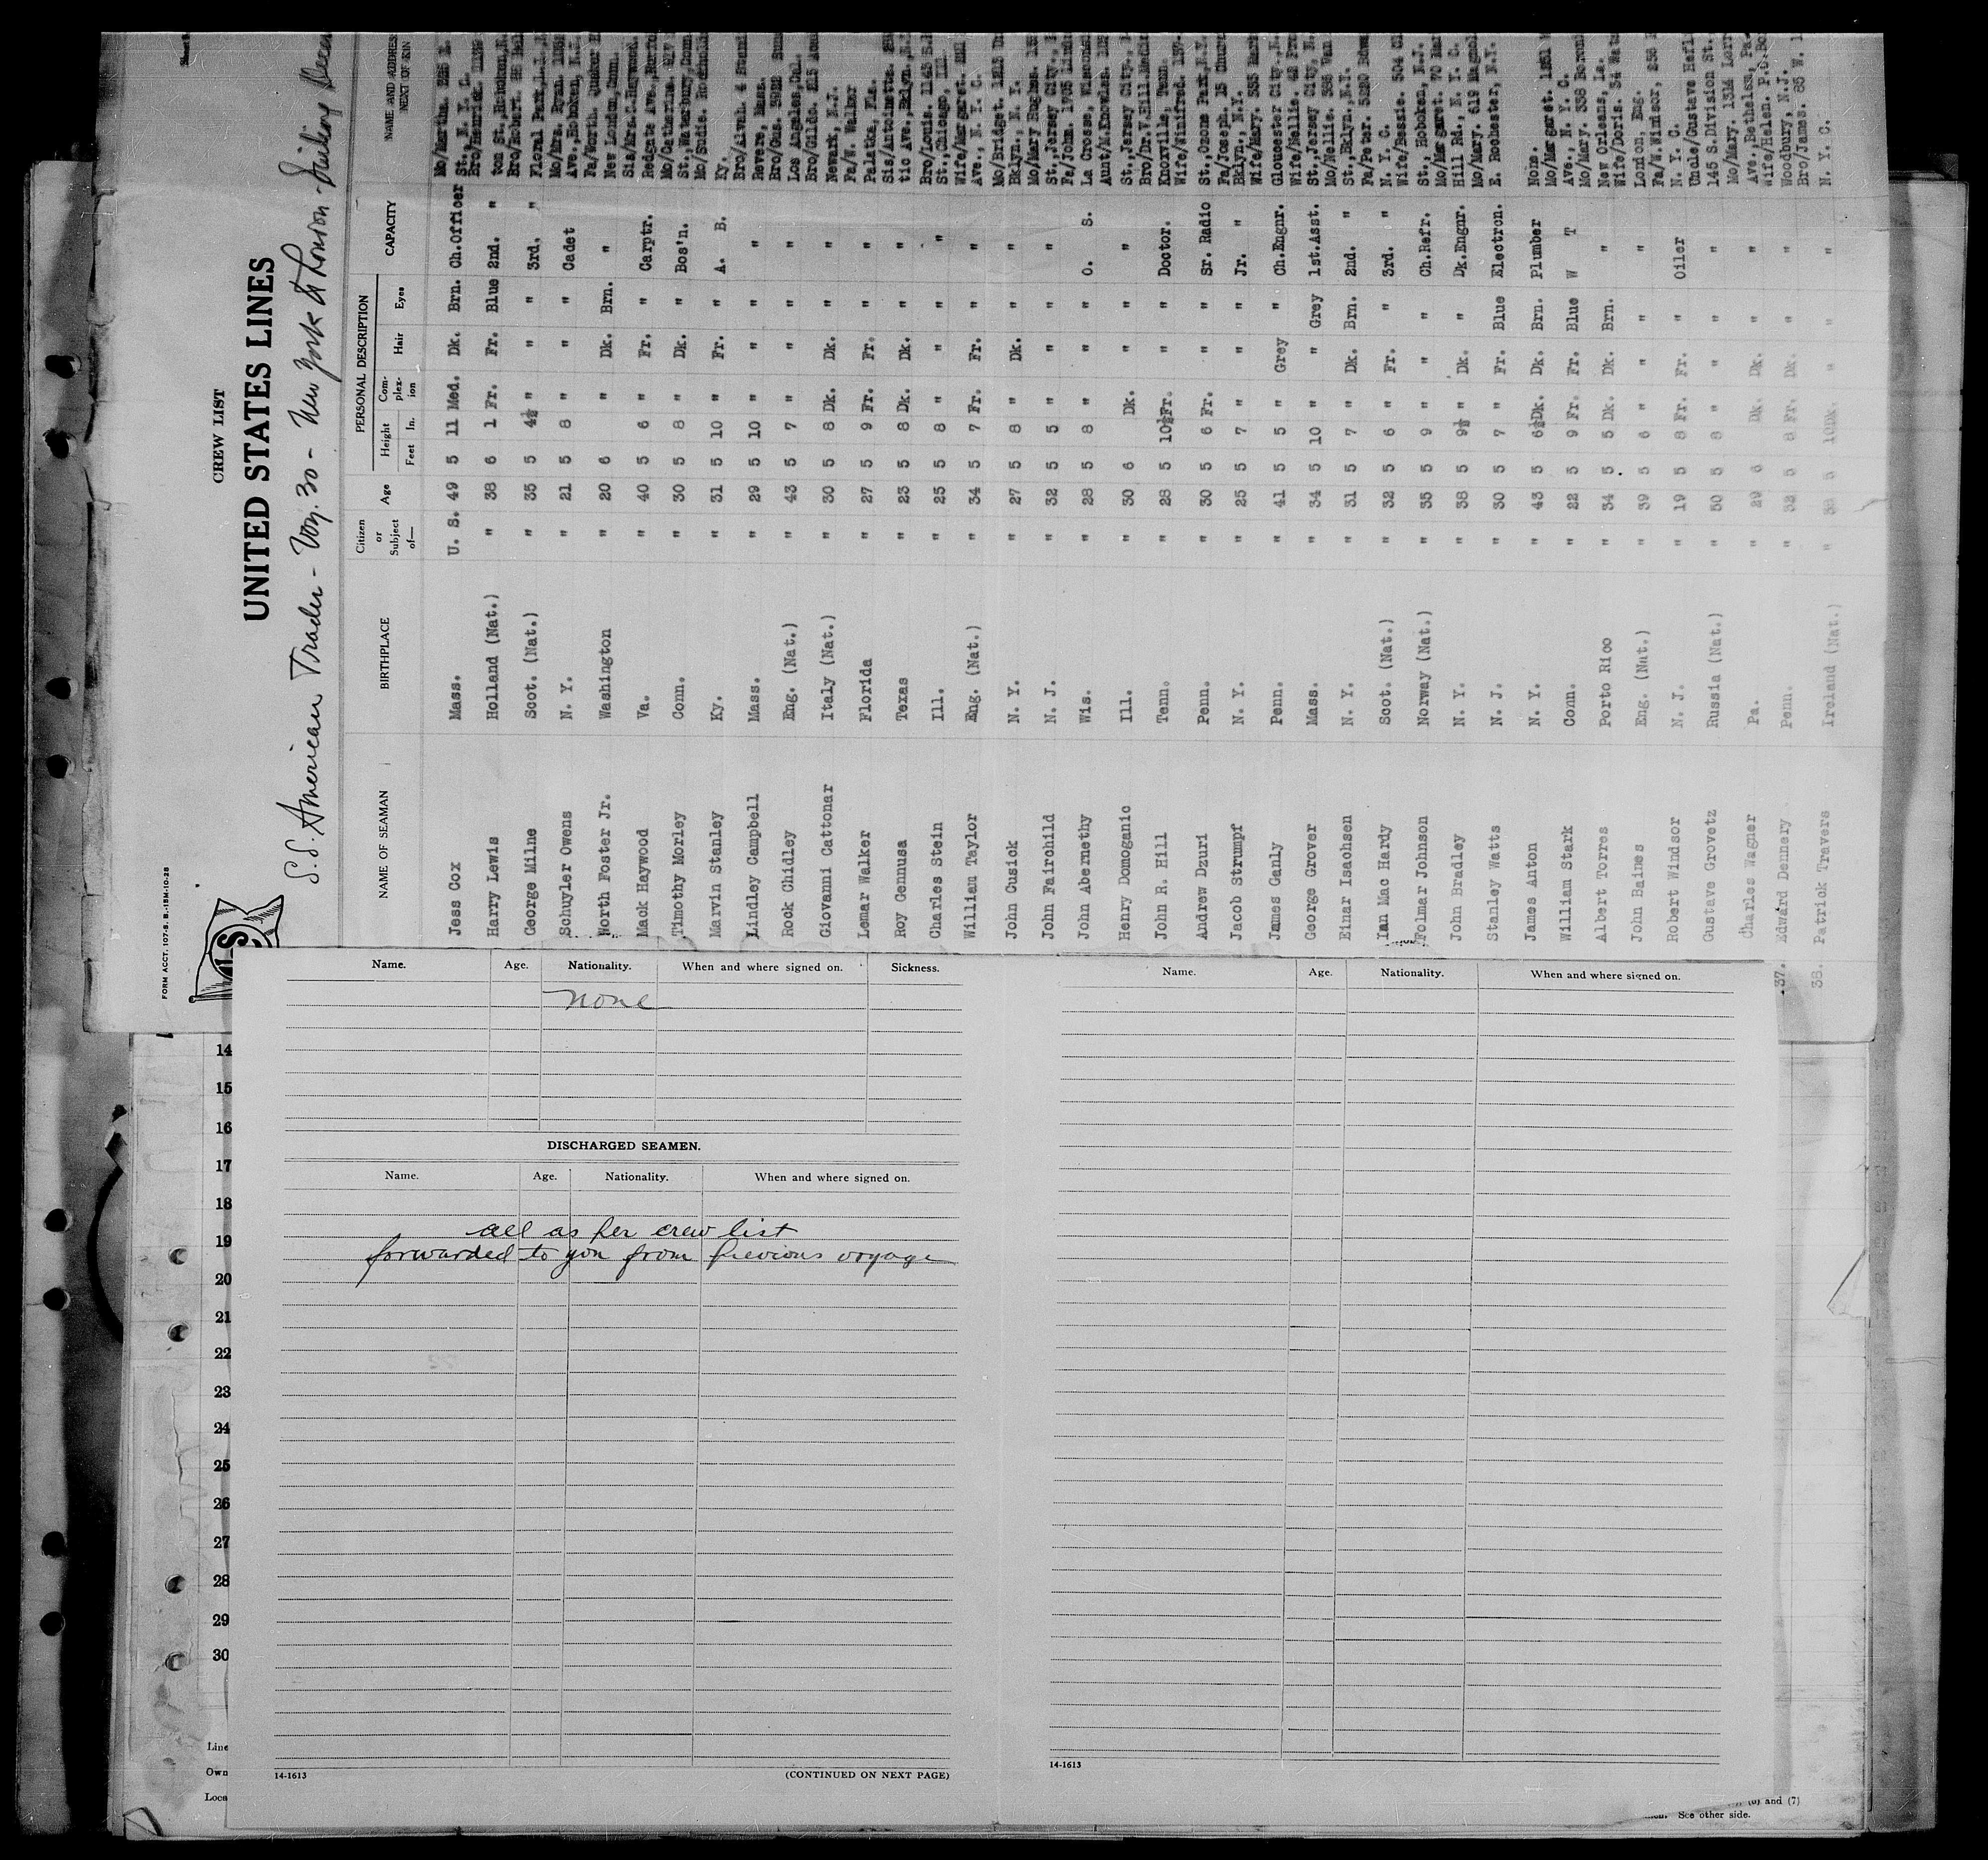 FORM ACCT. 107-S. B.-15M-10-28
CREW LIST
UNITED STATES LINES
S.S. American Trader - Voy. 30 - New York to London - Sailing Decem
NAME OF SEAMAN BIRTHPLACE Citizen or Subject of— Age PERSONAL DESCRIPTION CAPACITY NAME AND ADDRESS NEXT OF KIN
Height Feet In. Complexion Hair Eyes
Jess Cox Mass. U. S. 49 5 11 Med. Dk. Brn. Ch.Officer Mo/Martha.
St., N. Y. C.
Harry Lewis Holland (Nat.) " 38 6 1 Fr. Fr. Blue 2nd. " Bro/Henrick.
ton St., Hoboken,N.
George Milne Scot. (Nat.) " 35 5 4½ " " " 3rd. " Bro/Robert.
Floral Park,L.I.,
Schuyler Owens N. Y. " 21 5 8 " " " Cadet Mo/Mrs. Ryan.
Ave.,Hoboken, N.J.
Worth Foster Jr. Washington " 20 6 " Dk. Brn. " Fa/Worth. Quaker H
New London,Conn.
Mack Haywood Va. " 40 5 6 " Fr. " Carptr. Sis/Mrs.C.Haywood.
Redgate Ave.,Norfo
Timothy Morley Conn. " 30 5 8 " Dk. " Bos'n. Mo/Catherine.
St.,Waterbury,Conn
Marvin Stanley Ky. " 31 5 10 " Fr. " A. B. Mo/Sudie.
Ky.
Lindley Campbell Mass. " 29 5 10 " " " " Bro/Alvah. 4
Revere, Mass.
Rock Chidley Eng. (Nat.) " 43 5 7 " " " " Bro/Gus.
Los Angeles,Cal.
Giovanni Cattonar Italy (Nat.) " 30 5 8 Dk. Dk. " " Bro/Gildo.
Newark, N.J.
Lemar Walker Florida " 27 5 9 Fr. Fr. " " Fa/W. Walker
Palatka, Fla.
Roy Gennusa Texas " 23 5 8 Dk. Dk. " " Sis/Antoinette.
tic Ave.,Bklyn.,N.
Charles Stein Ill. " 25 5 8 " " " " Bro/Louis. 1145 S.
St.,Chicago, Ill.
William Taylor Eng. (Nat.) " 34 5 7 Fr. Fr. " " Wife/Margaret.
Ave., N. Y. C.
John Cusick N. Y. " 27 5 8 " Dk. " " Mo/Bridget.
Bklyn., N. Y.
John Fairchild N. J. " 32 5 5 " " " " Mo/Mary Hughes.
St.,Jersey City.,
John Abernethy Wis. " 28 5 8 " " " O. S. Fa/John. 1705
La Crosse, Wisconsin
Henry Domoganic Ill. " 30 6 Dk. " " " Aunt/M.Knowles.
St.,Jersey City.,
John R. Hill Tenn. " 28 5 10½ Fr. " " Doctor. Bro/Dr.V.Hill.
Knoxville, Tenn.
Andrew Dzuri Penn. " 30 5 6 Fr. " " Sr. Radio Wife/Winifred.
St.,Ozone Park,N.Y.
Jacob Strumpf N. Y. " 25 5 7 " " " Jr. " Fa/Joseph. 15
Bklyn., N.Y.
James Ganly Penn. " 41 5 5 " Grey " Ch.Engnr. Wife/Mary.
Gloucester City.,N.
George Grover Mass. " 34 5 10 " " Grey 1st.Asst. Wife/Nellie.
St.,Jersey City, N.
Einar Isachsen N. Y. " 31 5 7 " Dk. Brn. 2nd. " Mo/Nellie.
St.,Bklyn.,N.Y.
Ian Mac Hardy Scot. (Nat.) " 32 5 6 " Fr. " 3rd. " Fa/Peter. 5220
N. Y. C.
Folmar Johnson Norway (Nat.) " 35 5 9 " " " Ch.Refr. Wife/Bessie. 504
St., Hoboken, N.J.
John Bradley N. Y. " 38 5 9½ " Dk. " Dk.Engnr. Mo/Margaret. 70
Hill Rd., N. Y. C.
Stanley Watts N. J. " 30 5 7 " Fr. Blue Electrcn. Mo/Mary. 619
E. Rochester, N.Y.
James Anton N. Y. " 43 5 6½ Dk. Dk. Brn. Plumber None.
William Stark Conn. " 22 5 9 Fr. Fr. Blue W T Mo/Margaret.
Ave., N. Y. C.
Albert Torres Porto Rico " 34 5 5 Dk. Dk. Brn. " Mo/Mary. 338
New Orleans, La.
John Baines Eng. (Nat.) " 39 5 6 " " " " Wife/Doris. 34
London, Eng.
Robert Windsor N. J. " 19 5 8 Fr. Fr. " Oiler Fa/W.Windsor,
N. Y. C.
Gustave Grovetz Russia (Nat.) " 50 5 8 " " " " Uncle/Gustave
145 S.Division St.
Charles Wagner Pa. " 29 6 Dk. Dk. " " Mo/Mary. 1314
Ave.,Bethelem, Pa.
37. Edward Dennery Penn. " 32 5 8 Fr. Dk. " " Wife/Helen. P.O.Bo
Woodbury, N.J.
38. Patrick Travers Ireland (Nat.) " 5 10 Dk. " " " Bro/James. 85 W. 1
N. Y. C.
Name. Age. Nationality. When and where signed on. Sickness.
none
DISCHARGED SEAMEN.
Name. Age. Nationality. When and where signed on.
all as per crew list
forwarded to you from previous voyage
14-1613 (CONTINUED ON NEXT PAGE)
Name. Age. Nationality. When and where signed on.
14-1613
14
15
16
17
18
19
20
21
22
23
24
25
26
27
28
29
30
Line
Own
Loca
and (7)
See other side.